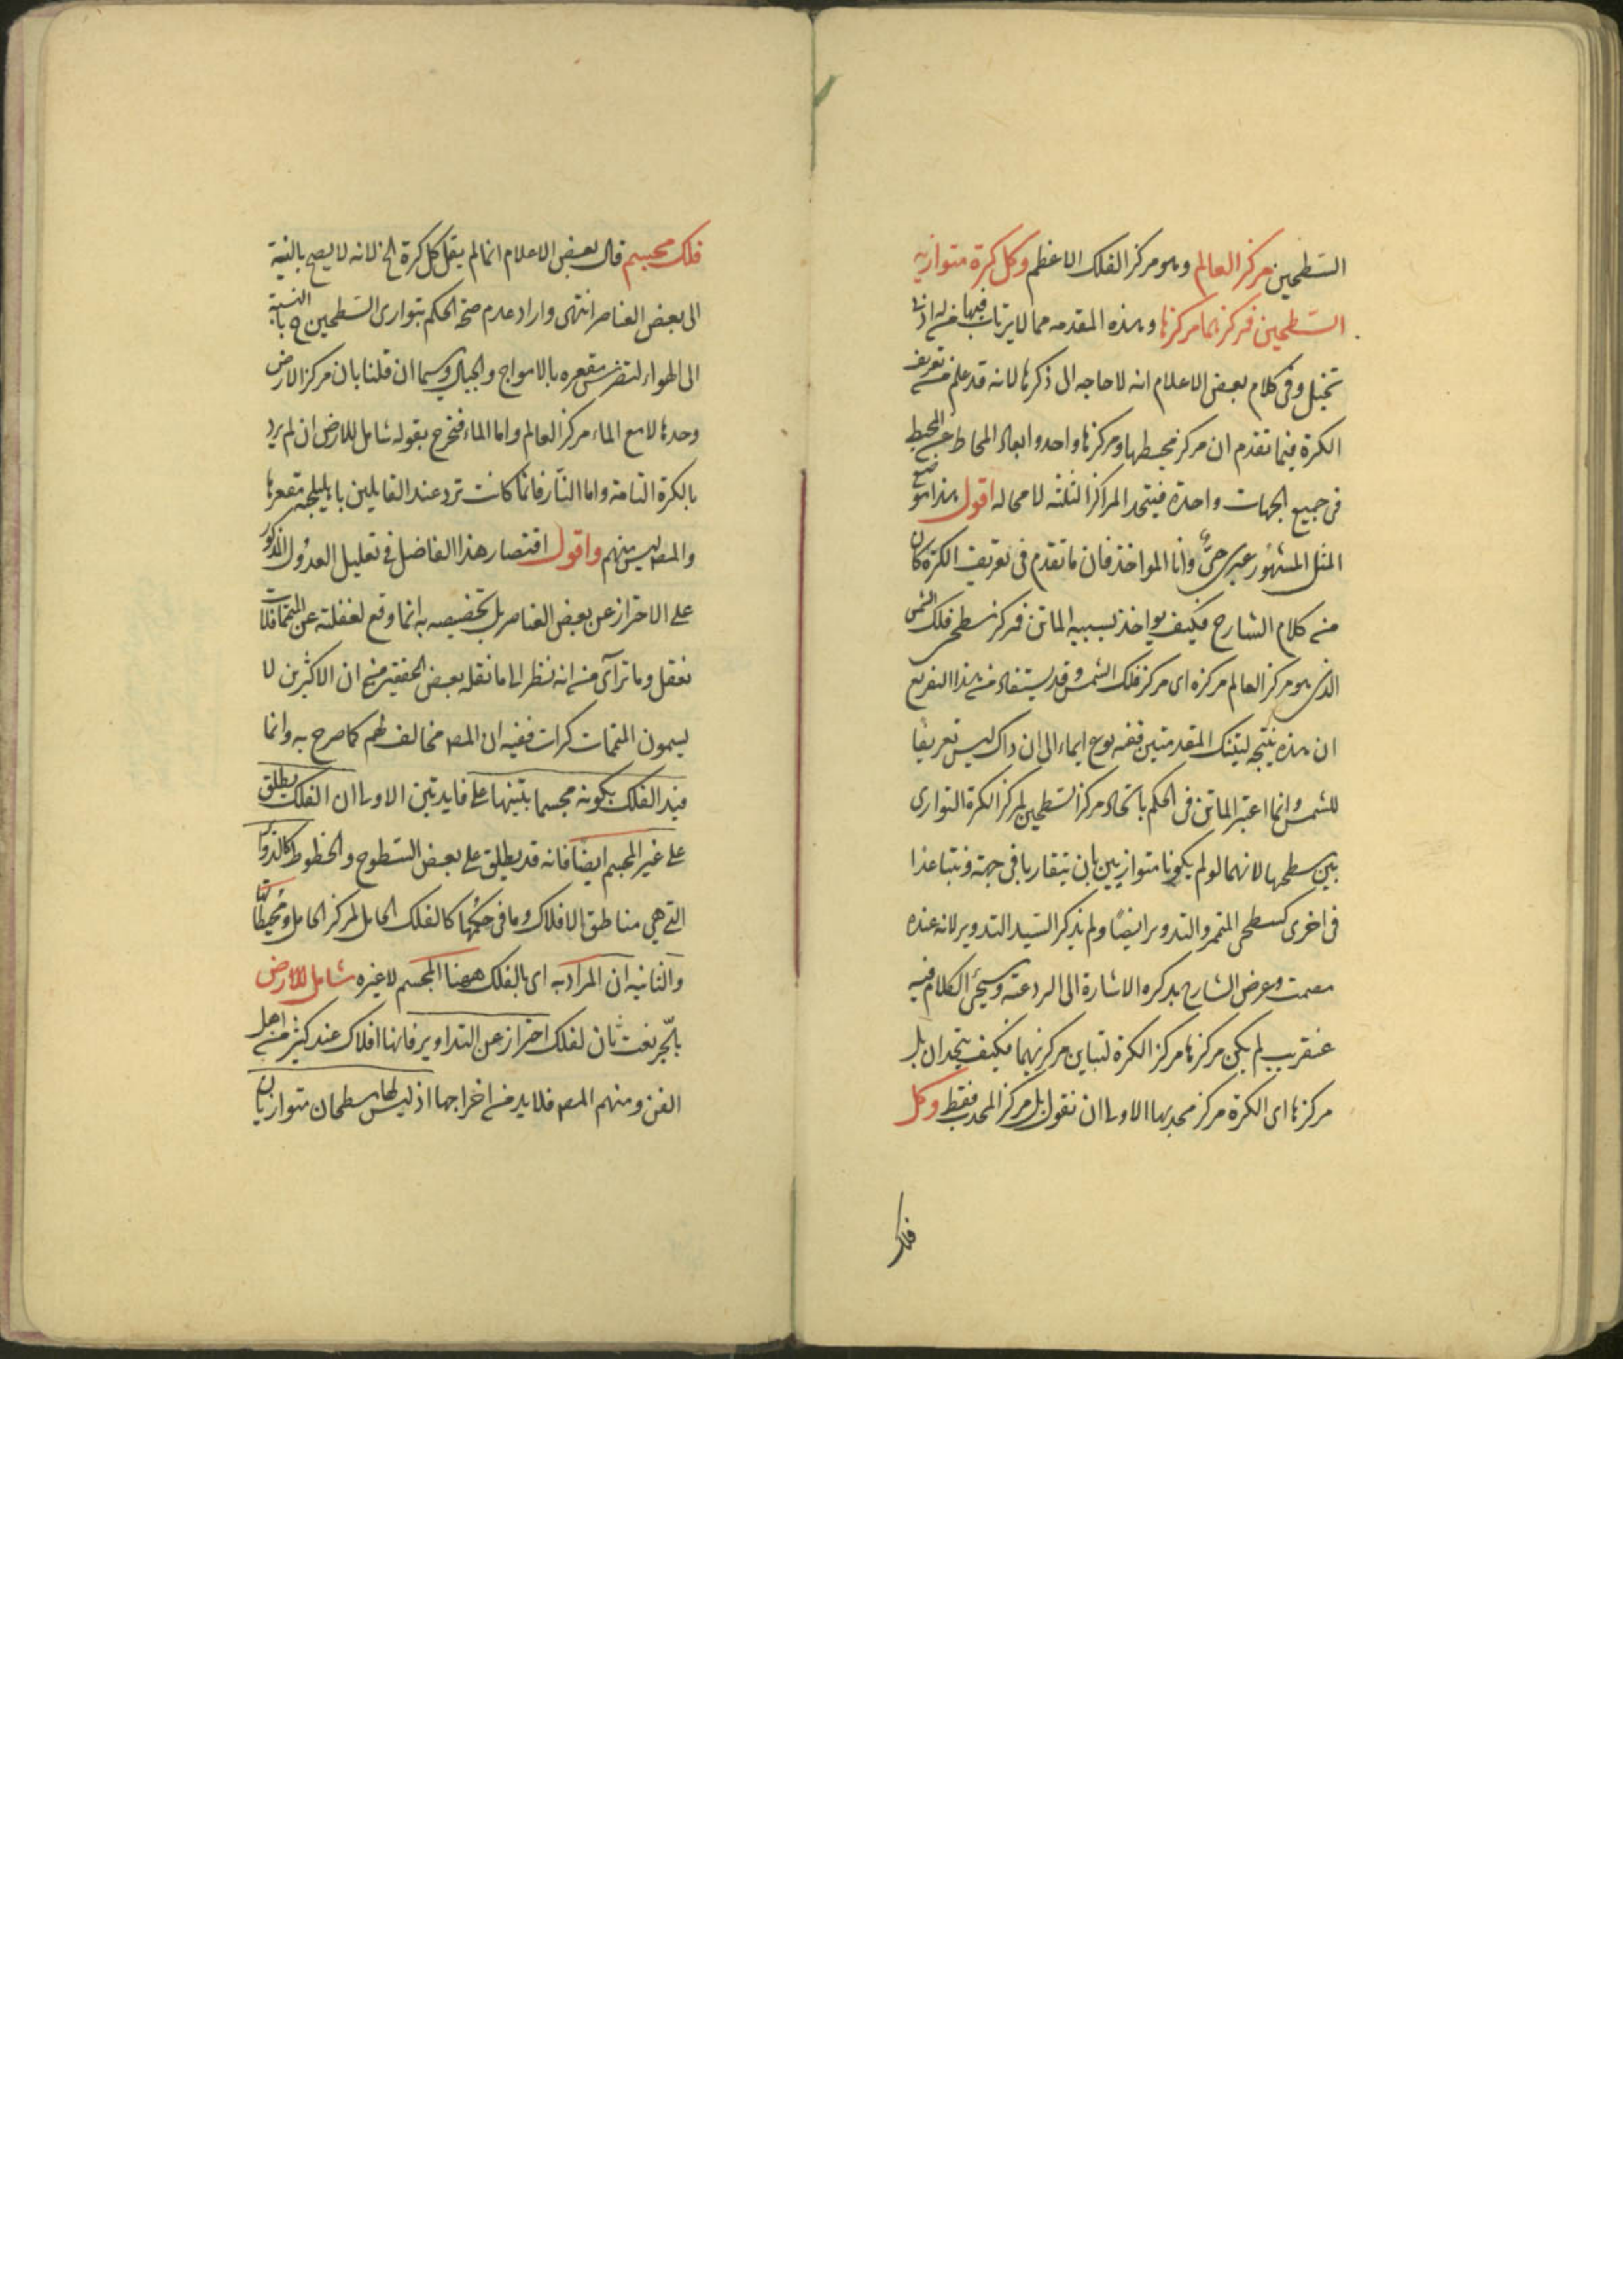 السّطحين مركز العالم وهو مركز الفلك الاعظم وكل كرة متوازية
السّطحين فمركزهما مركزها وهذه المقدمه مما لا يرتاب فيها من له ادنى
تخيل وفى كلام بعض الاعلام انه لا حاجه الى ذكرها لانه قد علم من تعريف
الكرة فيما تقدم ان مركز محيطها ومركزها واحد وابعاد المحاط عن المحيط
فى جميع الجهات واحدة فيتحد المراكز الثلثه لا محاله اقول هذا موضع
المثل المشهور عيرى جنى وانا المواخذ فان ما تقدم فى تعريف الكرة كان
من كلام الشارح فكيف يواخذ بسببه الماتن فمركز سطحى فلك الشمس
الذى هو مركز العالم مركزه اى مركز فلك الشمس وقد يستفاد من هذا التفريع
ان هذه نتيجه لتينك المقدمتين ففيه نوع ايماء الى ان ذاك ليس تعريفا
للشمس وانما اعتبر الماتن فى الحكم باتحاد مركز السّطحين لمركز الكرة التوازى
بين سطحيها لانهما لو لم يكونا متوازيين بان يتقاربا فى جهة ويتباعدا
فى اخرى كسطحى المتمم والتدوير ايضًا ولم يذكر السّيد التدوير لانه عنده
مصمت وغرض الشارح بذكره الاشارة الى الرد عنه وسيجئ الكلام فيه
عنقريب لم يكن مركزها مركز الكرة لتباين مركزيهما فكيف يتحدان بل
مركزها اى الكرة مركز محدبها الاولى ان نقول بل مركز المحدب فقط وكل
فلك
فلك مجسم قال بعض الاعلام انما لم يقل كل كرة الخ لانه لا يصح بالنسبة
الى بعض العناصر انتهى واراد عدم صحة الحكم بتوازى السّطحين ح بالنسبة
الى الهواء لتضرس مقعره بالامواج والجبال وسيما ان قلنا بان مركز الارض
وحدها لا مع الماء مركز العالم واما الماء فتخرج بقوله شامل للارض ان لم يرد
بالكرة التامة واما النّار فانما كانت ترد عند القايلين باهليلجية مقعرها
والمصـ ليس منهم واقول اقتصار هذا الفاضل فى تعليل العدول المذكور
على الاحتراز عن بعض العناصر بل تخصيصه به انما وقع لغفلته عن المتممات فلا
تغفل وما تراآى من انه نظر الى ما نقله بعض المحققين من ان الاكثرين لا
يسمون المتممات كرات ففيه ان المصـ مخالف لهم كما صرح به وانما
قيد الفلك بكونه مجسما بتنبيها على فايدتين الاولى ان الفلك يطلق
على غير المجسم ايضًا فانه قد يطلق على بعض السّطوح والخطوط كالدوائر
التى هى مناطق الافلاك وما فى حكمها كالفلك الحامل لمركز الحامل ومحيطا
والثانيه ان المراد به اى بالفلك ههنا المجسم لا غيره شامل للارض
بالجّر نعت ثان لفلك احتراز عن التداوير فانها افلاك عند كثير من اهل
الفن ومنهم المصـ فلا بد من اخراجها اذ ليس لها سطحان متوازيان